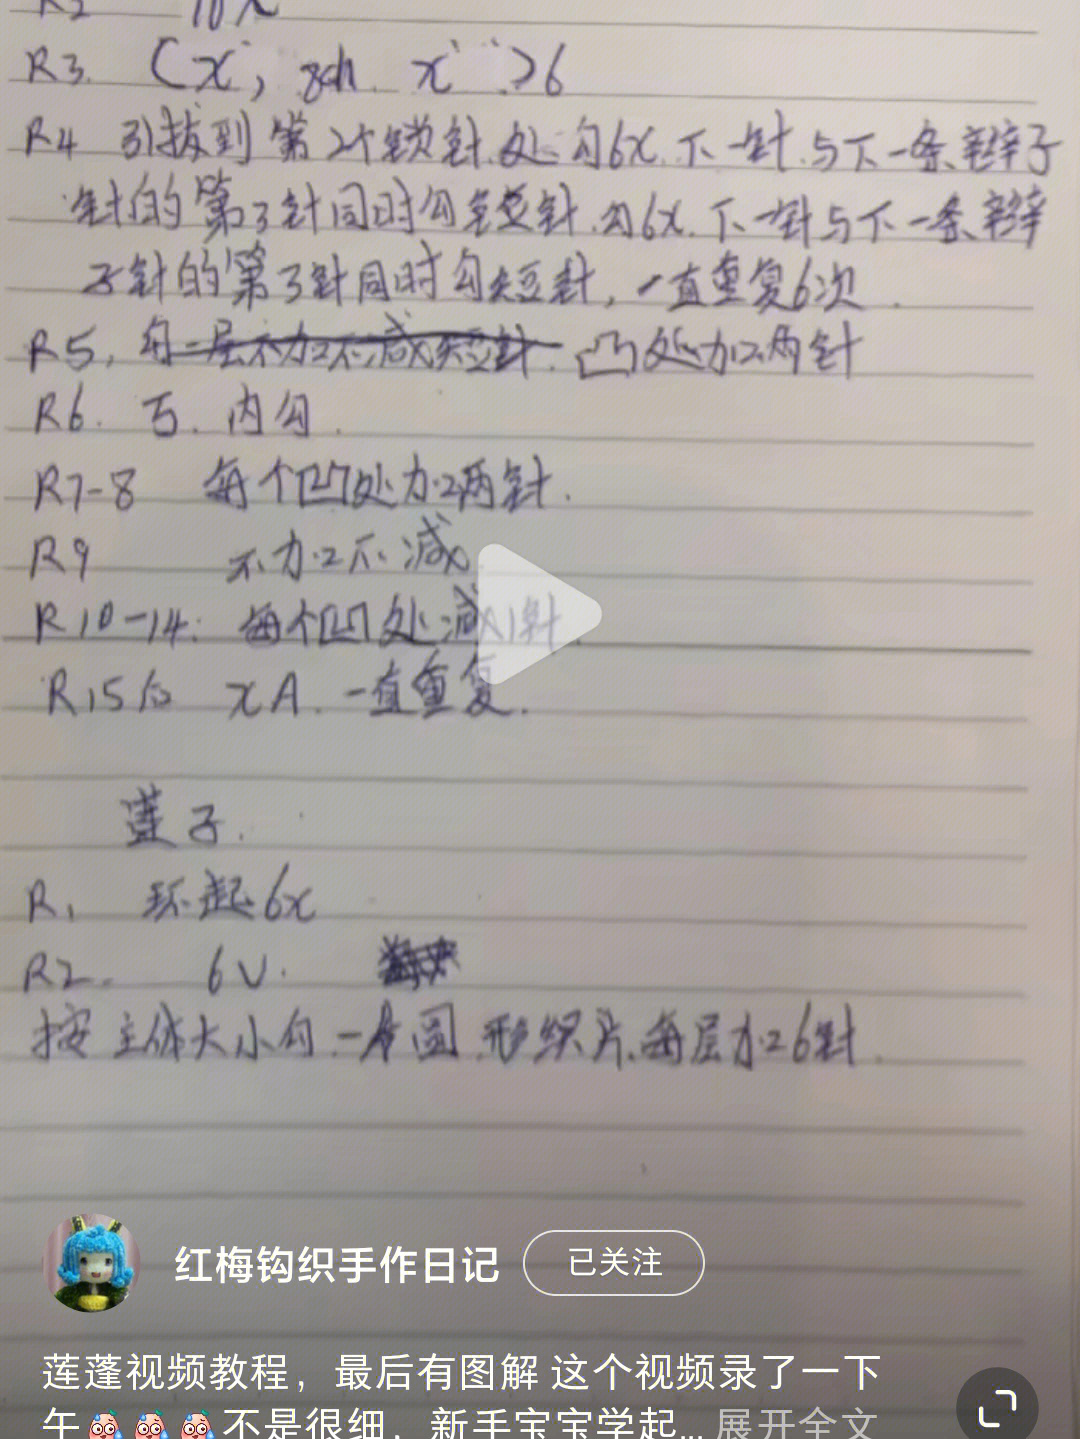 R2 18x
R3. (x, 8ch. x)6
R4 引拔到第2个锁针处.勾6x.下一针.与下一条辫子
针的第3针同时勾短针.勾6x.下一针与下一条辫
子针的第3针同时勾短针,一直重复6次.
R5, 每一层不加不减短针. 凸处加两针
R6. 内勾.
R7-8 每个凹处加两针.
R9 不加不减
R10-14: 每个凹处减1针.
R15后 xA.一直重复.
莲子.
R1 环起6x
R2. 6V.
按主体大小勾一个圆形织片.每层加6针.
红梅钩织手作日记 已关注
莲蓬视频教程，最后有图解 这个视频录了一下
午不是很细，新手宝宝学起... 展开全文